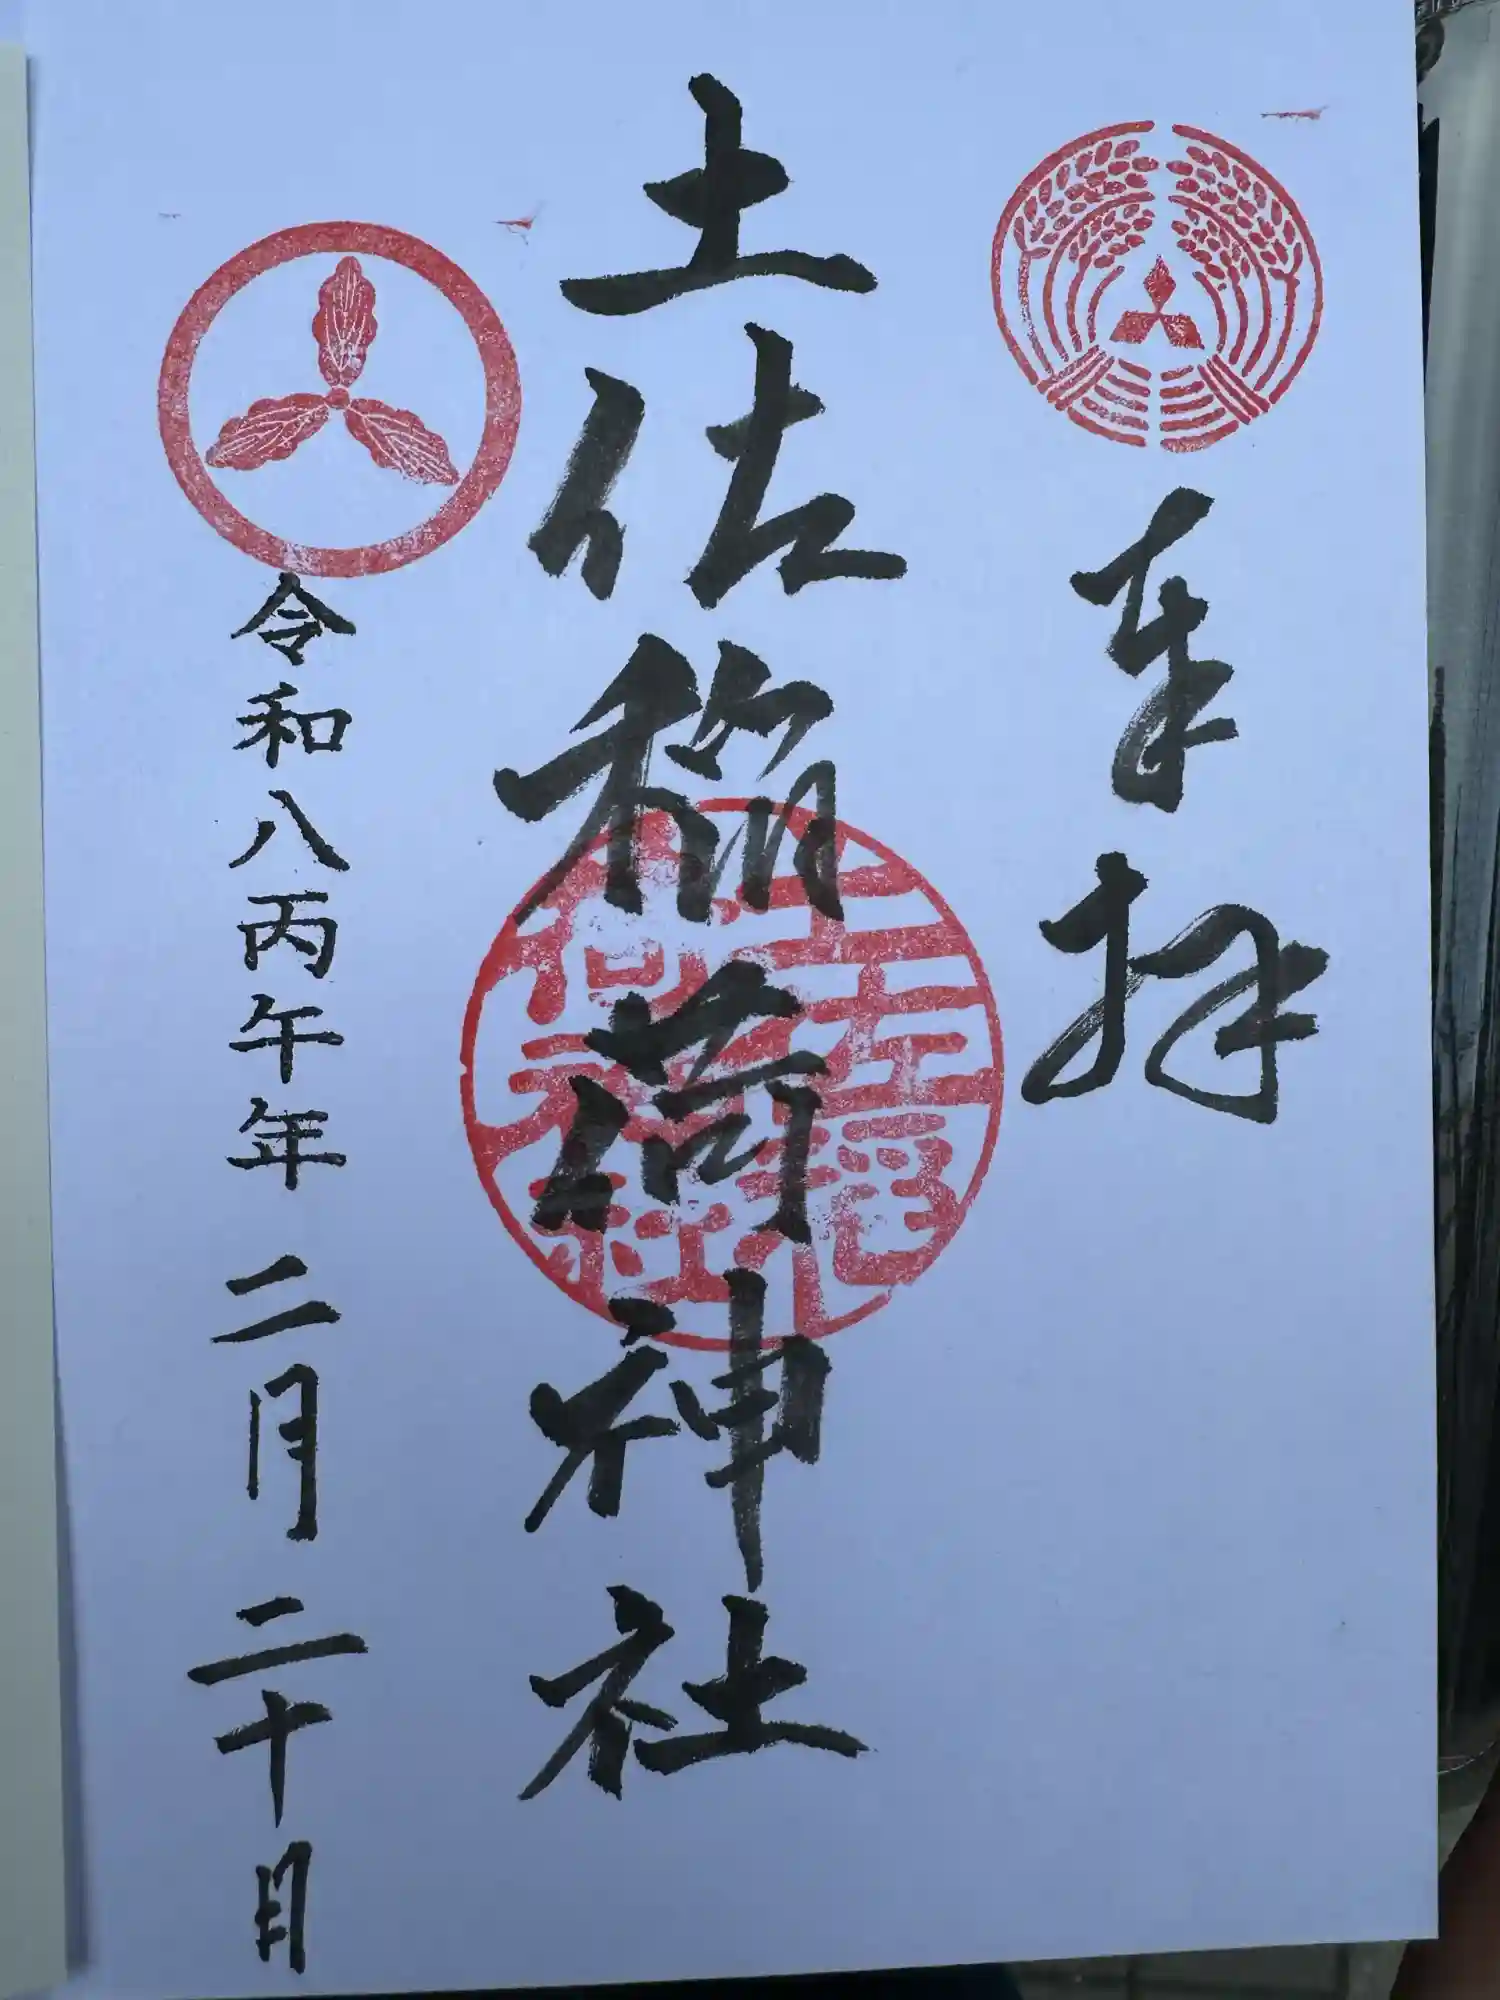 奉拝
土佐稲荷神社
土左稲荷神社
令和八丙午年二月二十日